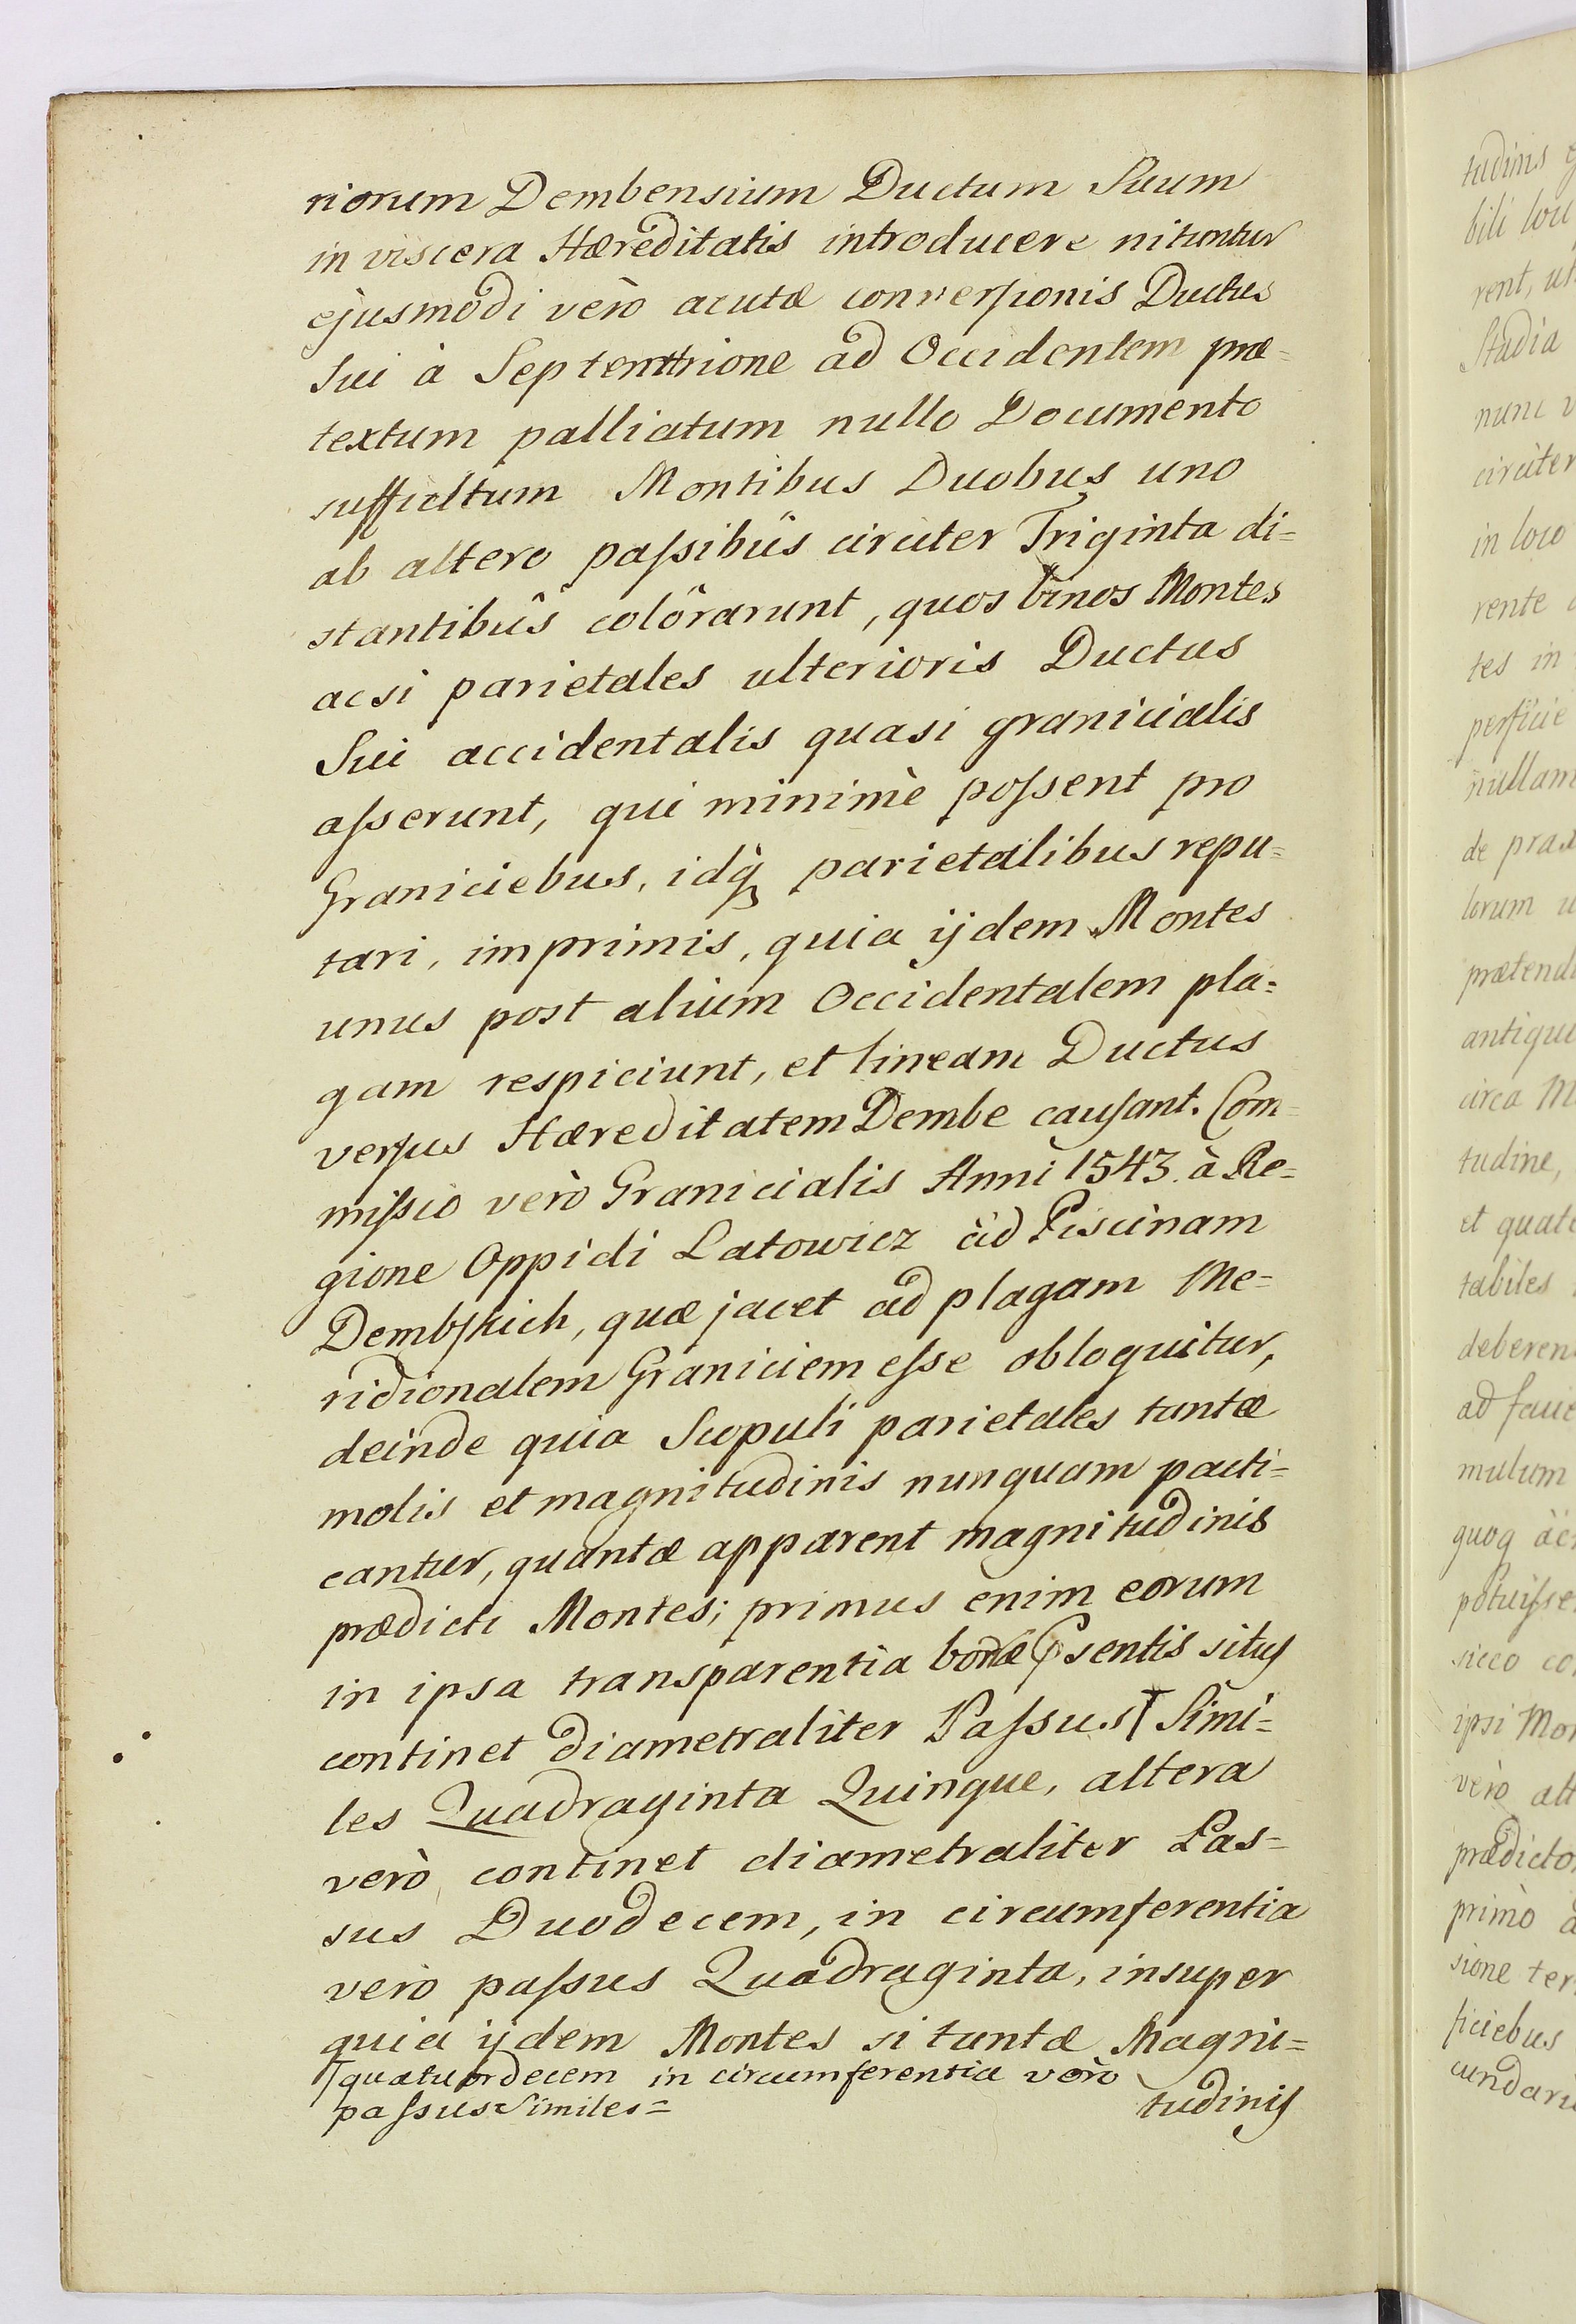 riorum Dembensium Ductum Suum
in viscera Hæreditatis introducere nituntur
ejusmodi verò acutæ conversionis Ductus
Sui à Septemtrione ad Occidentem præ=
textum palliatum nullo Documento
suffultum Montibus Duobus uno
ab altero passibus circiter Triginta di=
stantibus colorarunt, quos binos Montes
acsi parietales ulterioris Ductus
Sui accidentalis quasi granicialis
asserunt, qui minimè possent pro
Graniciebus, idq parietalibus repu=
tari, imprimis, quia ijdem Montes
unus post alium Occidentalem pla=
gam respiciunt, et lineam Ductus
versus Hæreditatem Dembe causant. Com=
missio verò Granicialis Anni 1543. à Re=
gione Oppidi Latowicz ad Piscinam
Dembskich, quæ jacet ad plagam Me=
ridionalem Graniciem esse obloquitur,
deinde quia Scopuli parietales tantæ
molis et magnitudinis nunquam pacti=
cantur, quantæ apparent magnitudinis
prædicti Montes; primus enim eorum
in ipsa transparentia bonæ sentis situs
continet diametraliter Passus Simi=
les Quadraginta Quinque, altera
verò continet diametraliter Pas=
sus Duodecem, in circumferentia
vero passus Quadraginta, insuper
quia ijdem Montes si tantæ Magni=
quatuordecem in circumferentia vero
passus Similes=
tudinis
tudinis
bili
rent,
Stadia
nunc
circiter
in loco
rente
tes in
perficie
nullam
de
lorum
prætend
antiqu
circa M
tudine,
et quat
tabiles
deberen
ad
mulum
quoq
potuisse
sicco co
ipsi Mo
verò alt
prædicto
primò
sione ter
ficiebus
cundari